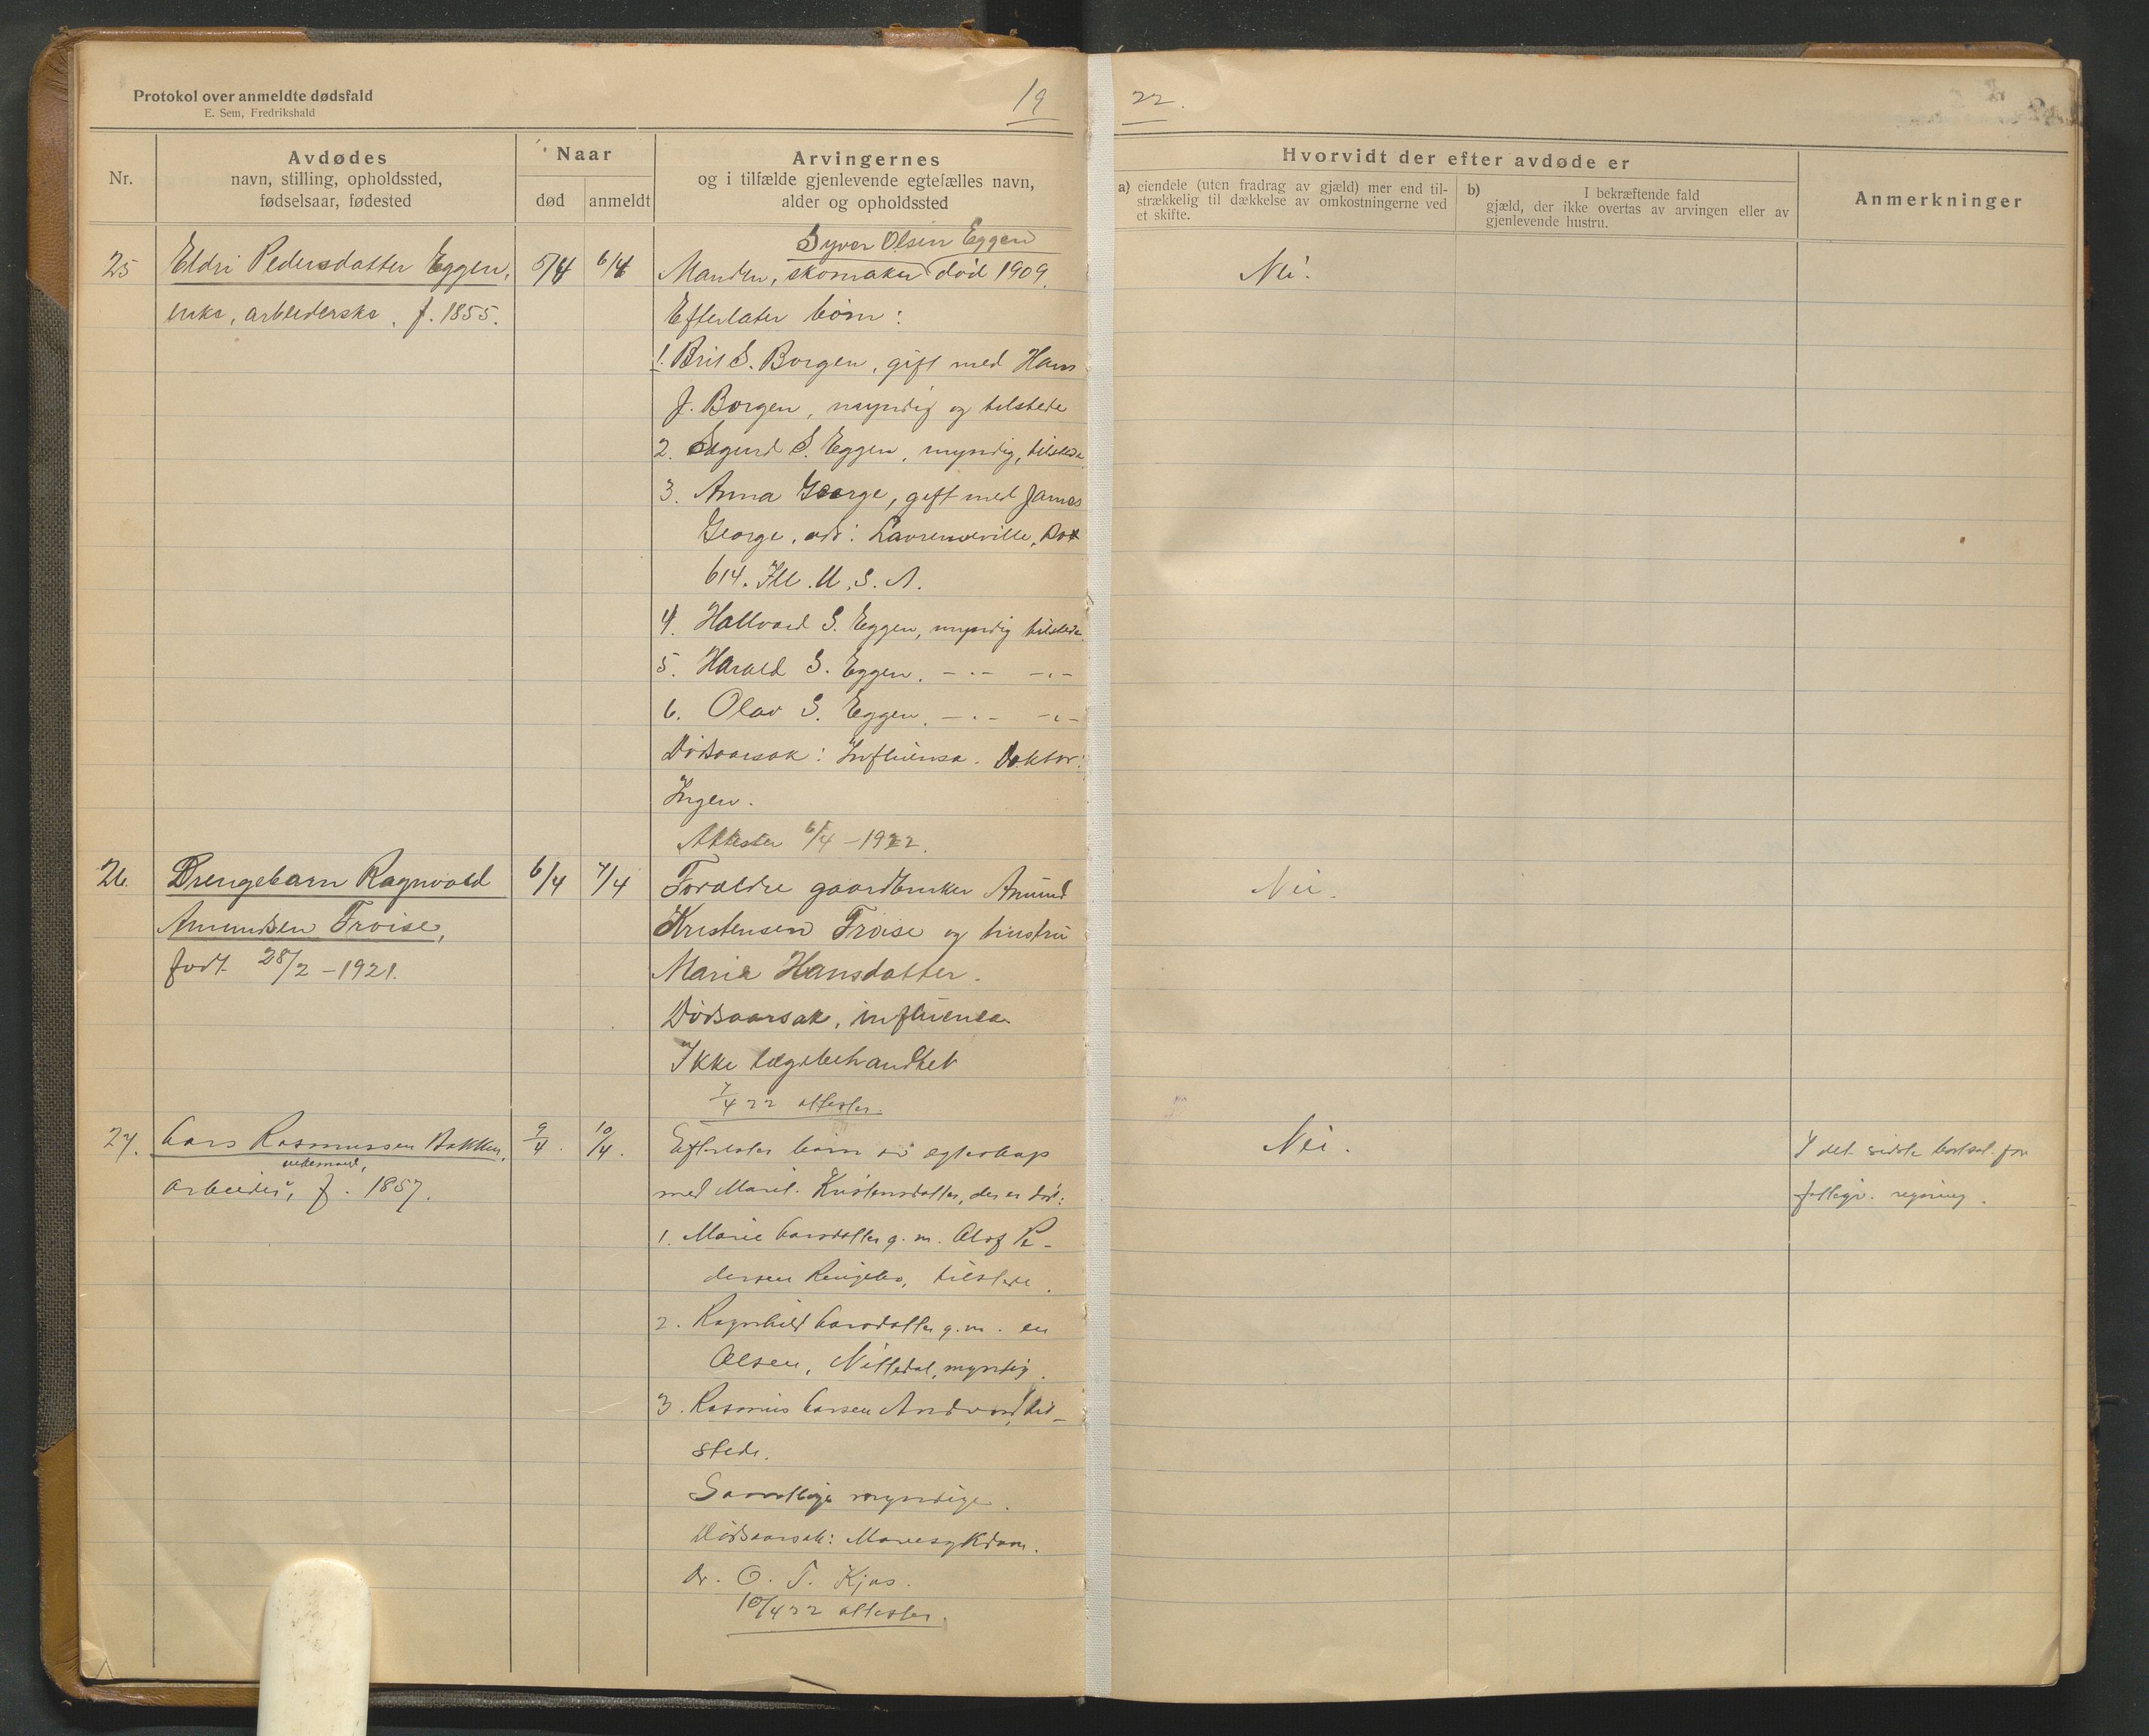 Protokol over anmeldte dødsfald
E. Sem, Fredrikshald
19
22.
Nr.
Avdødes
navn, stilling, opholdssted,
fødselsaar, fødested
Naar
død
anmeldt
Arvingernes
og i tilfælde gjenlevende egtefælles navn,
alder og opholdssted
Hvorvidt der efter avdøde er
a) eiendele (uten fradrag av gjæld) mer end til-
strækkelig til dækkelse av omkostningerne ved
et skifte.
b) I bekræftende fald
gjæld, der ikke overtas av arvingen eller av
gjenlevende hustru.
Anmerkninger
25
Eldri Pedersdatter Eggen,
enke, arbeiderske, f. 1855.
5/4
6/4
Syver Olsen Eggen
Manden, skomaker død 1909.
Efterlater børn:
1. Brit S. Borgen, gift med Hans
J. Borgen, myndig og tilstede
2. Sigurd S. Eggen, myndig, tilstede
3. Anna George, gift med James
George, adr: Lawrenceville, Box
614. Ill. U. S. A.
4. Hallvard S. Eggen, myndig tilstede
5. Harald S. Eggen. -.- -.-
6. Olav S. Eggen. -.- -.-
Dødsaarsak: Influensa. Doktor:
Ingen.
Attester 6/4 -1922.
Nei.
26.
Drengebarn Ragnvald
Amundsen Frøise,
født 28/2 -1921.
6/4
7/4
Forældre gaardbruker Amund
Kristensen Frøise og hustru
Marie Hansdatter.
Dødsaarsak, influensa
Ikke lægebehandlet
7/4 22 attester.
Nei.
27.
Lars Rasmussen Bakken,
enkemand,
arbeider, f. 1857.
9/4.
10/4.
Efterlater børn av egteskap
med Marit Kristensdatter, der er død:
1. Marie Larsdatter g. m. Olof Pe-
dersen Ringebo, tilstede.
2. Ragnhild Larsdatter g. m. en
Olsen, Nittedal, myndig.
3. Rasmus Larsen Andvord, til-
stede.
Samtlige myndige.
Dødsaarsak: Mavesykdom.
Dr. O. T. Kjos.
10/4 22 attester.
Nei.
I det sidste bortsat for
fattigv. regning.